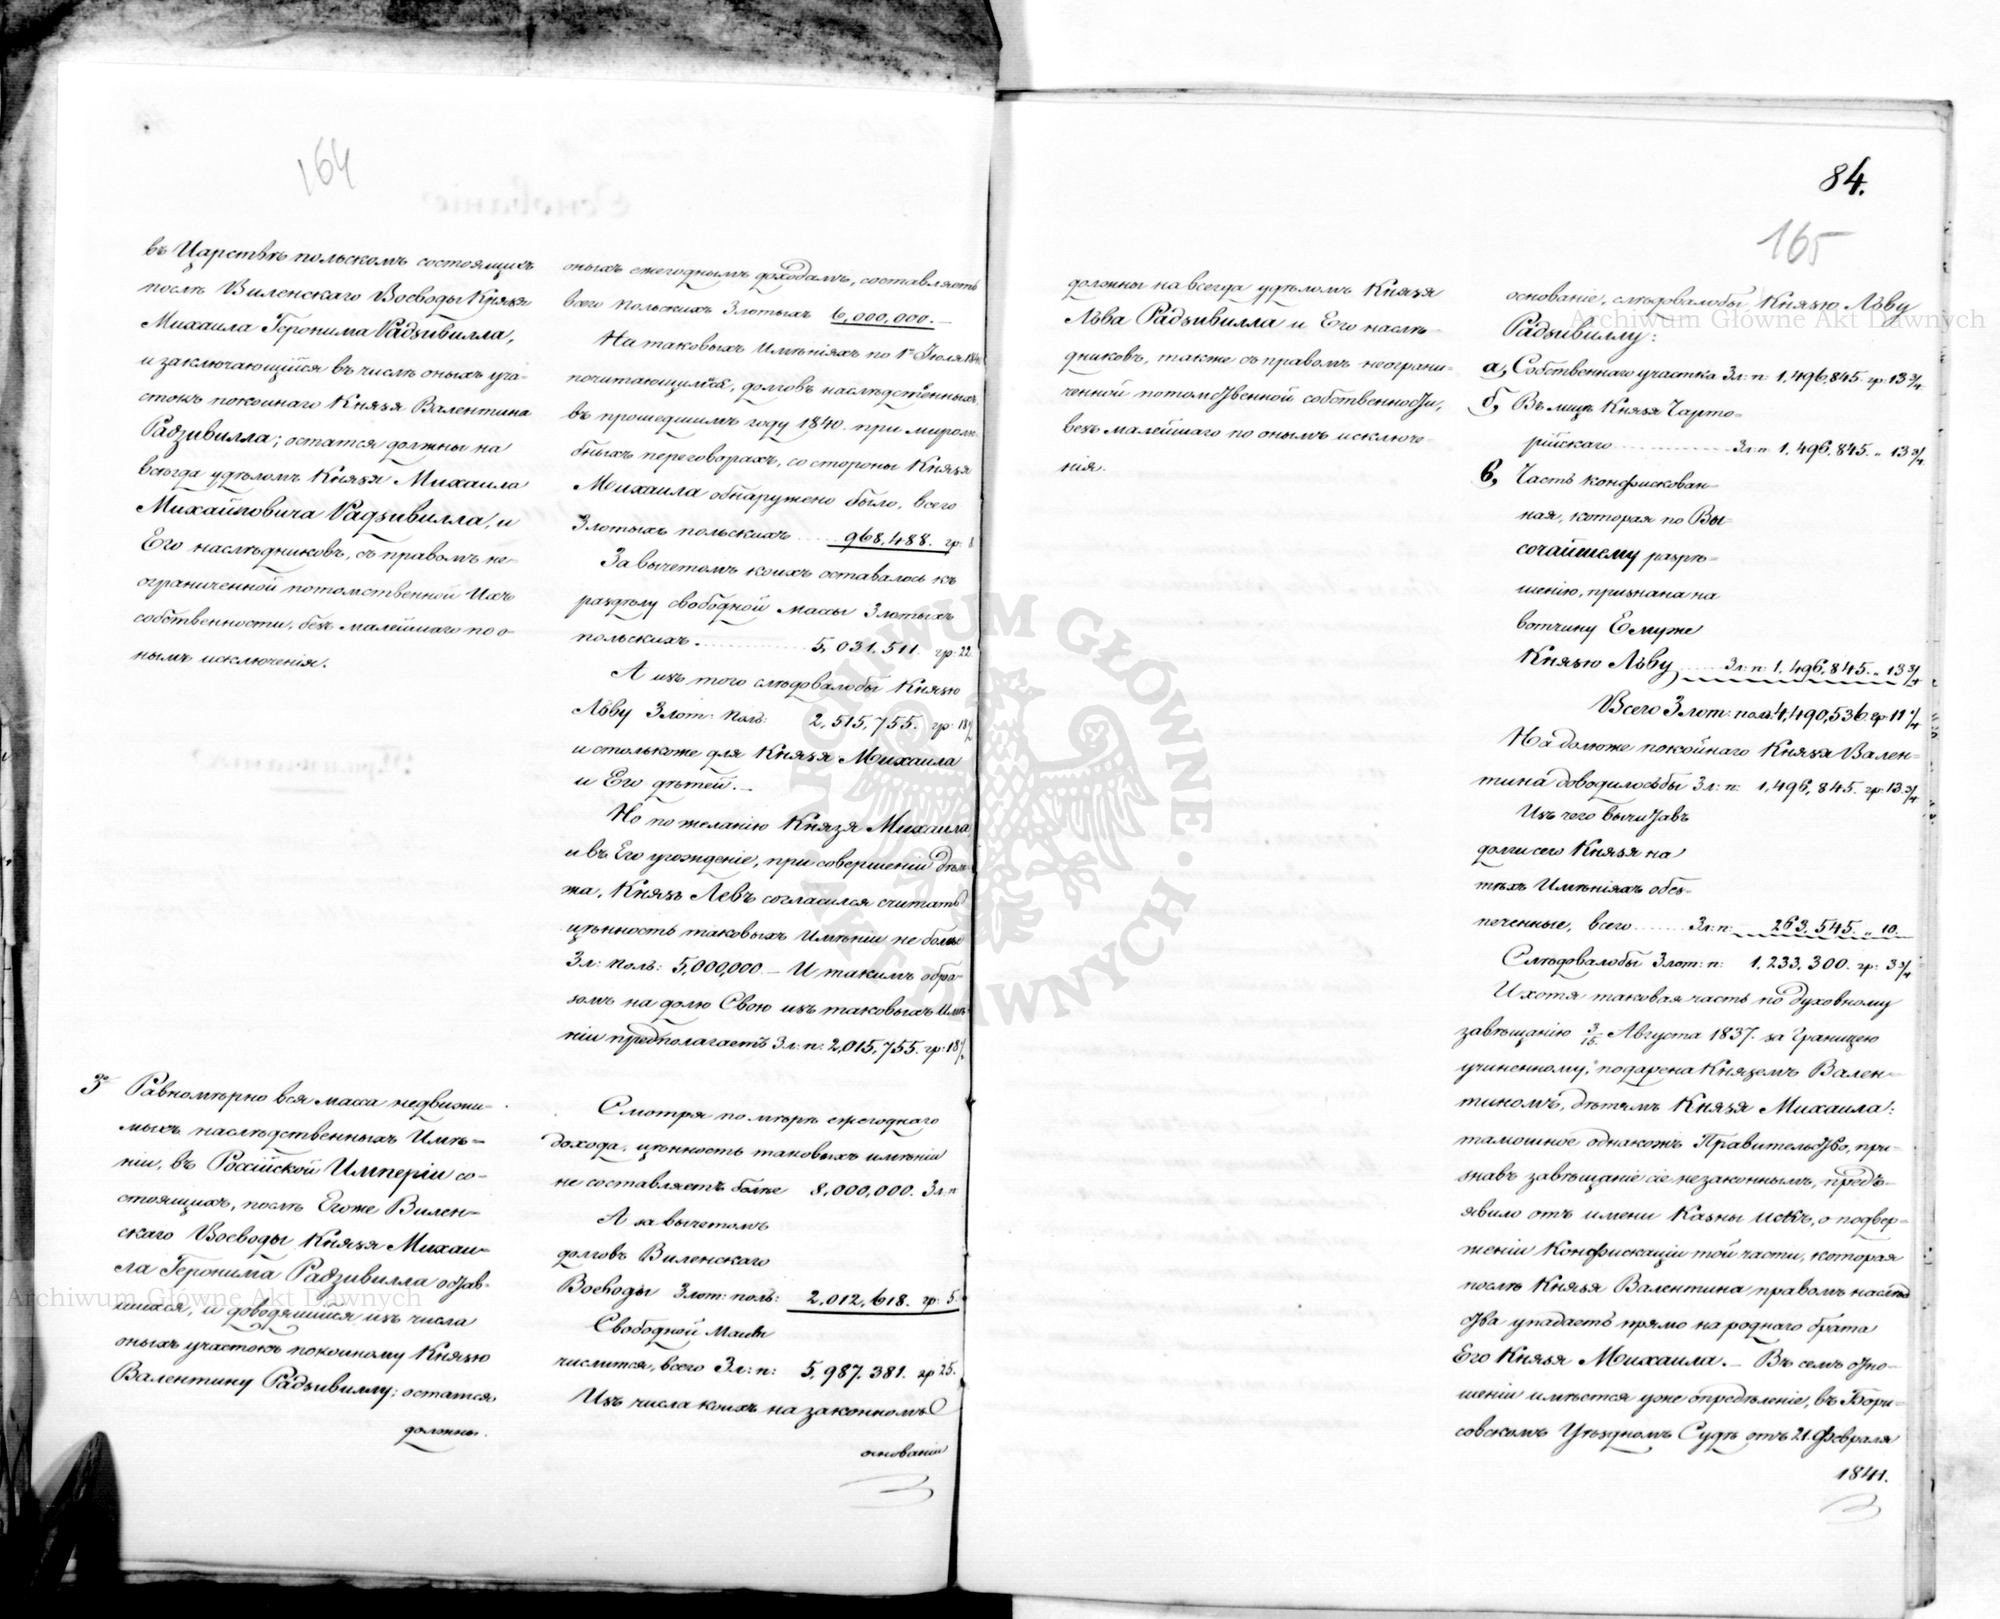 164
въ Царствѣ польскомъ состоящихъ
послѣ Виленскаго Воеводы Князя
Михаила Геронима Радзивилла,
и заключающійся въ числѣ оныхъ уча-
стокъ покойнаго Князя Валентина
Радзивилла; остатся должны на
всегда удѣломъ Князя Михаила
Михайловича Радзивилла, и
Его наслѣдниковъ, съ правомъ не-
ограниченной потомственной Ихъ
собственности, безъ малейшаго по о-
нымъ исключенія.
3е Равномѣрно вся масса недвижи-
мыхъ наслѣдственныхъ Имѣ-
ніи, въ Россійской Имперіи со-
стоящихъ, послѣ Егоже Вилен-
скаго Воеводы Князя Михаи-
ла Геронима Радзивилла остав-
шихся, и доводящійся изъ числа
оныхъ участокъ покойному Князю
Валентину Радзивиллу; остатся
должны.
оныхъ ежегоднымъ доходамъ, составляетъ
всего польскихъ Злотыхъ 6,000,000.—
На таковыхъ Имѣніяхъ по 1е Іюля 184
почитающихся, долговъ наслѣдственныхъ,
въ прошедшимъ году 1840. при миролю-
бныхъ переговорахъ, со стороны Князя
Михаила обнаружено было, всего
Злотыхъ польскихъ ..... 968,488. гр: 8
За вычетомъ коихъ оставалось къ
раздѣлу свободной массы Злотыхъ
польскихъ. .......... 5,031,511. гр: 22.
А изъ того слѣдовалобы Князю
Льву Злот: поль: 2,515,755. гр: 18½
и столькоже для Князя Михаила
и Его дѣтей.—
Но по желанію Князя Михаила,
и въ Его угожденіе, при совершеніи дѣле-
жа, Князь Левъ согласился считать
цѣнность таковыхъ Имѣніи не более
Зл: поль: 5,000,000.— И такимъ обра-
зомъ на долю Свою изъ таковыхъ Имѣ-
ніи предполагаетъ Зл: п: 2,015,755. гр: 18½
Смотря по мѣрѣ ежегоднаго
дохода, цѣнность таковыхъ имѣніи
не составляетъ более 8,000,000. Зл: п
А за вычетомъ
долговъ Виленскаго
Воеводы Злот: поль: 2,012,618. гр: 5.
Свободной Массы
числится, всего Зл: п: 5,987,381. гр 25.
Изъ числа коихъ на законномъ
основаніи
84.
165
должны на всегда удѣломъ Князя
Льва Радзивилла и Его наслѣ-
дниковъ, также съ правомъ неограни-
ченной потомственной собственности,
безъ малейшаго по онымъ исключе-
нія.
основаніе, слѣдовалобы Князю Льву
Радзивиллу:
а, Собственнаго участка Зл: п 1,496,845. гр: 13¾
б, Въ лицѣ Князя Чарто-
рійскаго .......... Зл: п 1,496,845. „ 13¾
в, Часть конфискован-
ная, которая по Вы-
сочайшему разрѣ-
шенію, признана на
вотчину Емуже
Князю Льву ..... Зл: п: 1,496,845. „ 13¾
Всего Злот: поль: 4,490,536. гр 11¼
На долюже покойнаго Князя Вален-
тина доводилосьбы Зл: п: 1,496,845. гр: 13¾
Изъ чего вычитавъ
долги сего Князя на
тѣхъ Имѣніяхъ обез-
печенные, всего ..... Зл: п: 263,545. „ 10.
Слѣдовалобы Злот: п: 1,233,300. гр: 3¾
И хотя таковая часть по духовному
завѣщанію 3/15 Августа 1837. за Границею
учиненному, подарена Княземъ Вален-
тиномъ, дѣтямъ Князя Михаила:
тамошное однакожъ Правительство, при-
знавъ завѣщаніе сіе незаконнымъ, предъ-
явило отъ имени Казны искъ, о подвер-
женіи Конфискаціи той части, которая
послѣ Князя Валентина правомъ наслѣд
ства упадаетъ прямо на роднаго брата
Его Князя Михаила.— Въ семъ отно-
шеніи имѣется уже опредѣленіе, въ Бори-
совскомъ Уѣздномъ Судѣ отъ 21. Февраля
1841.
Archiwum Główne Akt Dawnych
Archiwum Główne Akt Dawnych
ARCHIWUM GŁÓWNE AKT DAWNYCH